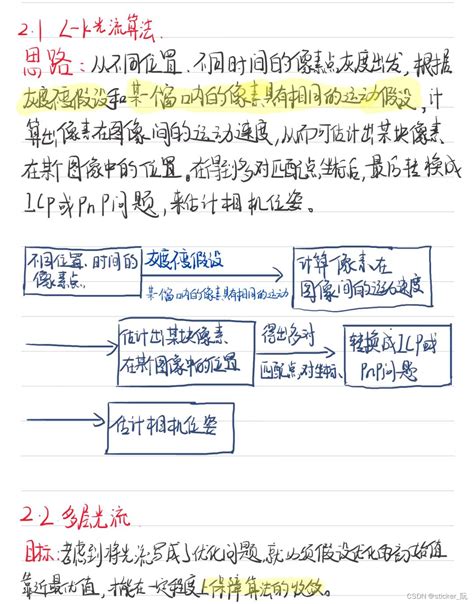 2.1 L-K光流算法.
思路：从不同位置、不同时间的像素点灰度出发，根据
灰度不变假设和某一窗口内的像素具有相同的运动假设，计
算出像素在图像间的运动速度，从而可估计出某块像素
在新图像中的位置。在得到多对匹配点坐标后，最后转换成
ICP或PnP问题，来估计相机位姿。
不同位置、时间的
像素点.
灰度不变假设
某一窗口内的像素具有相同的运动
计算像素在
图像间的运动速度
估计出某块像素
在新图像中的位置
得出多对
匹配点对坐标.
转换成ICP或
PnP问题
估计相机位姿
2.2 多层光流
目标：考虑到将光流写成了优化问题，就必须假设优化的初始值
靠近最优值，才能在一定程度上保障算法的收敛。
CSDN @sticker_阮